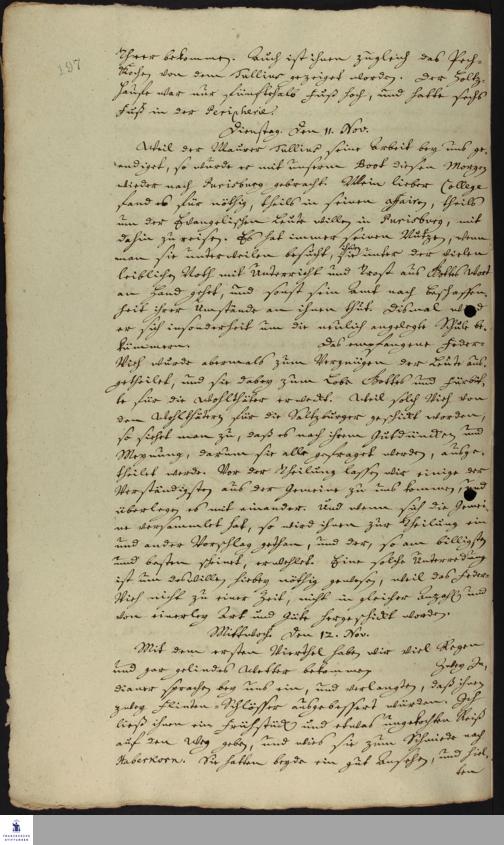 197
Theer bekommen. Auch ist ihnen zugleich das Pech-
Kochen von dem Tullius gezeiget worden. Der Holtz-
Haufe war nur fünftehalb Fuß hoch, und hatte sechs
Fuß in der Peripherie.
Dienstag. Den 11. Nov.
Weil der Maurer Tullius seine Arbeit bey uns ge-
endiget, so wurde er mit unserm Boot diesen Morgen
wieder nach Purisburg gebracht. Mein lieber College
fand es für nöthig, theils in seinen affairen, theils
um der Evangelischen Leute willen in Purisburg, mit
dahin zu reisen. Es hat immer seinen Nutzen, wenn
man sie unterweilen besucht, ihnen unter der vielen
leiblichen Noth mit Unterricht und Trost aus Gottes Wort
an Hand gehet, und sonst sein Amt nach Beschaffen-
heit ihrer Umstände an ihnen thut. Dismal wird
er sich insonderheit um die neulich angelegte Schule be-
kümmern. Das empfangene Feder-
Vieh wurde abermals zum Vergnügen der Leute aus-
getheilet, und sie dabey zum Lobe Gottes und Fürbit-
te für die Wohlthäter erweckt. Weil solch Vieh von
den Wohlthätern für die Saltzburger geschickt worden,
so siehet man zu, daß es nach ihrem Gutdüncken und
Meynung, darum sie alle gefraget werden, ausge-
theilet werde. Vor der Theilung lassen wir einige der
Verständigsten aus der Gemeine zu uns kommen, und
überlegen es mit einander. Und wenn sich die Gemei-
ne versammlet hat, so wird ihnen zur Theilung ein
und ander Vorschlag gethan, und der, so am billigsten
und besten scheint, erwehlet. Eine solche Unterredung
ist um deswillen hiebey nöthig gewesen, weil das Feder-
Vieh nicht zu einer Zeit, nicht in gleicher Anzahl und
von einerley Art und Güte hergeschickt worden.
Mittwochs den 12. Nov.
Mit dem ersten Vierthel haben wir viel Regen
und gar gelindes Wetter bekommen. Zwey In-
dianer sprachen bey uns ein, und verlangten, daß ihnen
zwey Flinten-Schlösser ausgebessert würden. Ich
ließ ihnen ein Frühstück und etwas ungekochten Reiß
auf den Weg geben, und wies sie zum Schmiede nach
Haberkorn. Sie hatten beyde ein gut Ansehen, und hiel-
ten
FRANCKESCHE
STIFTUNGEN